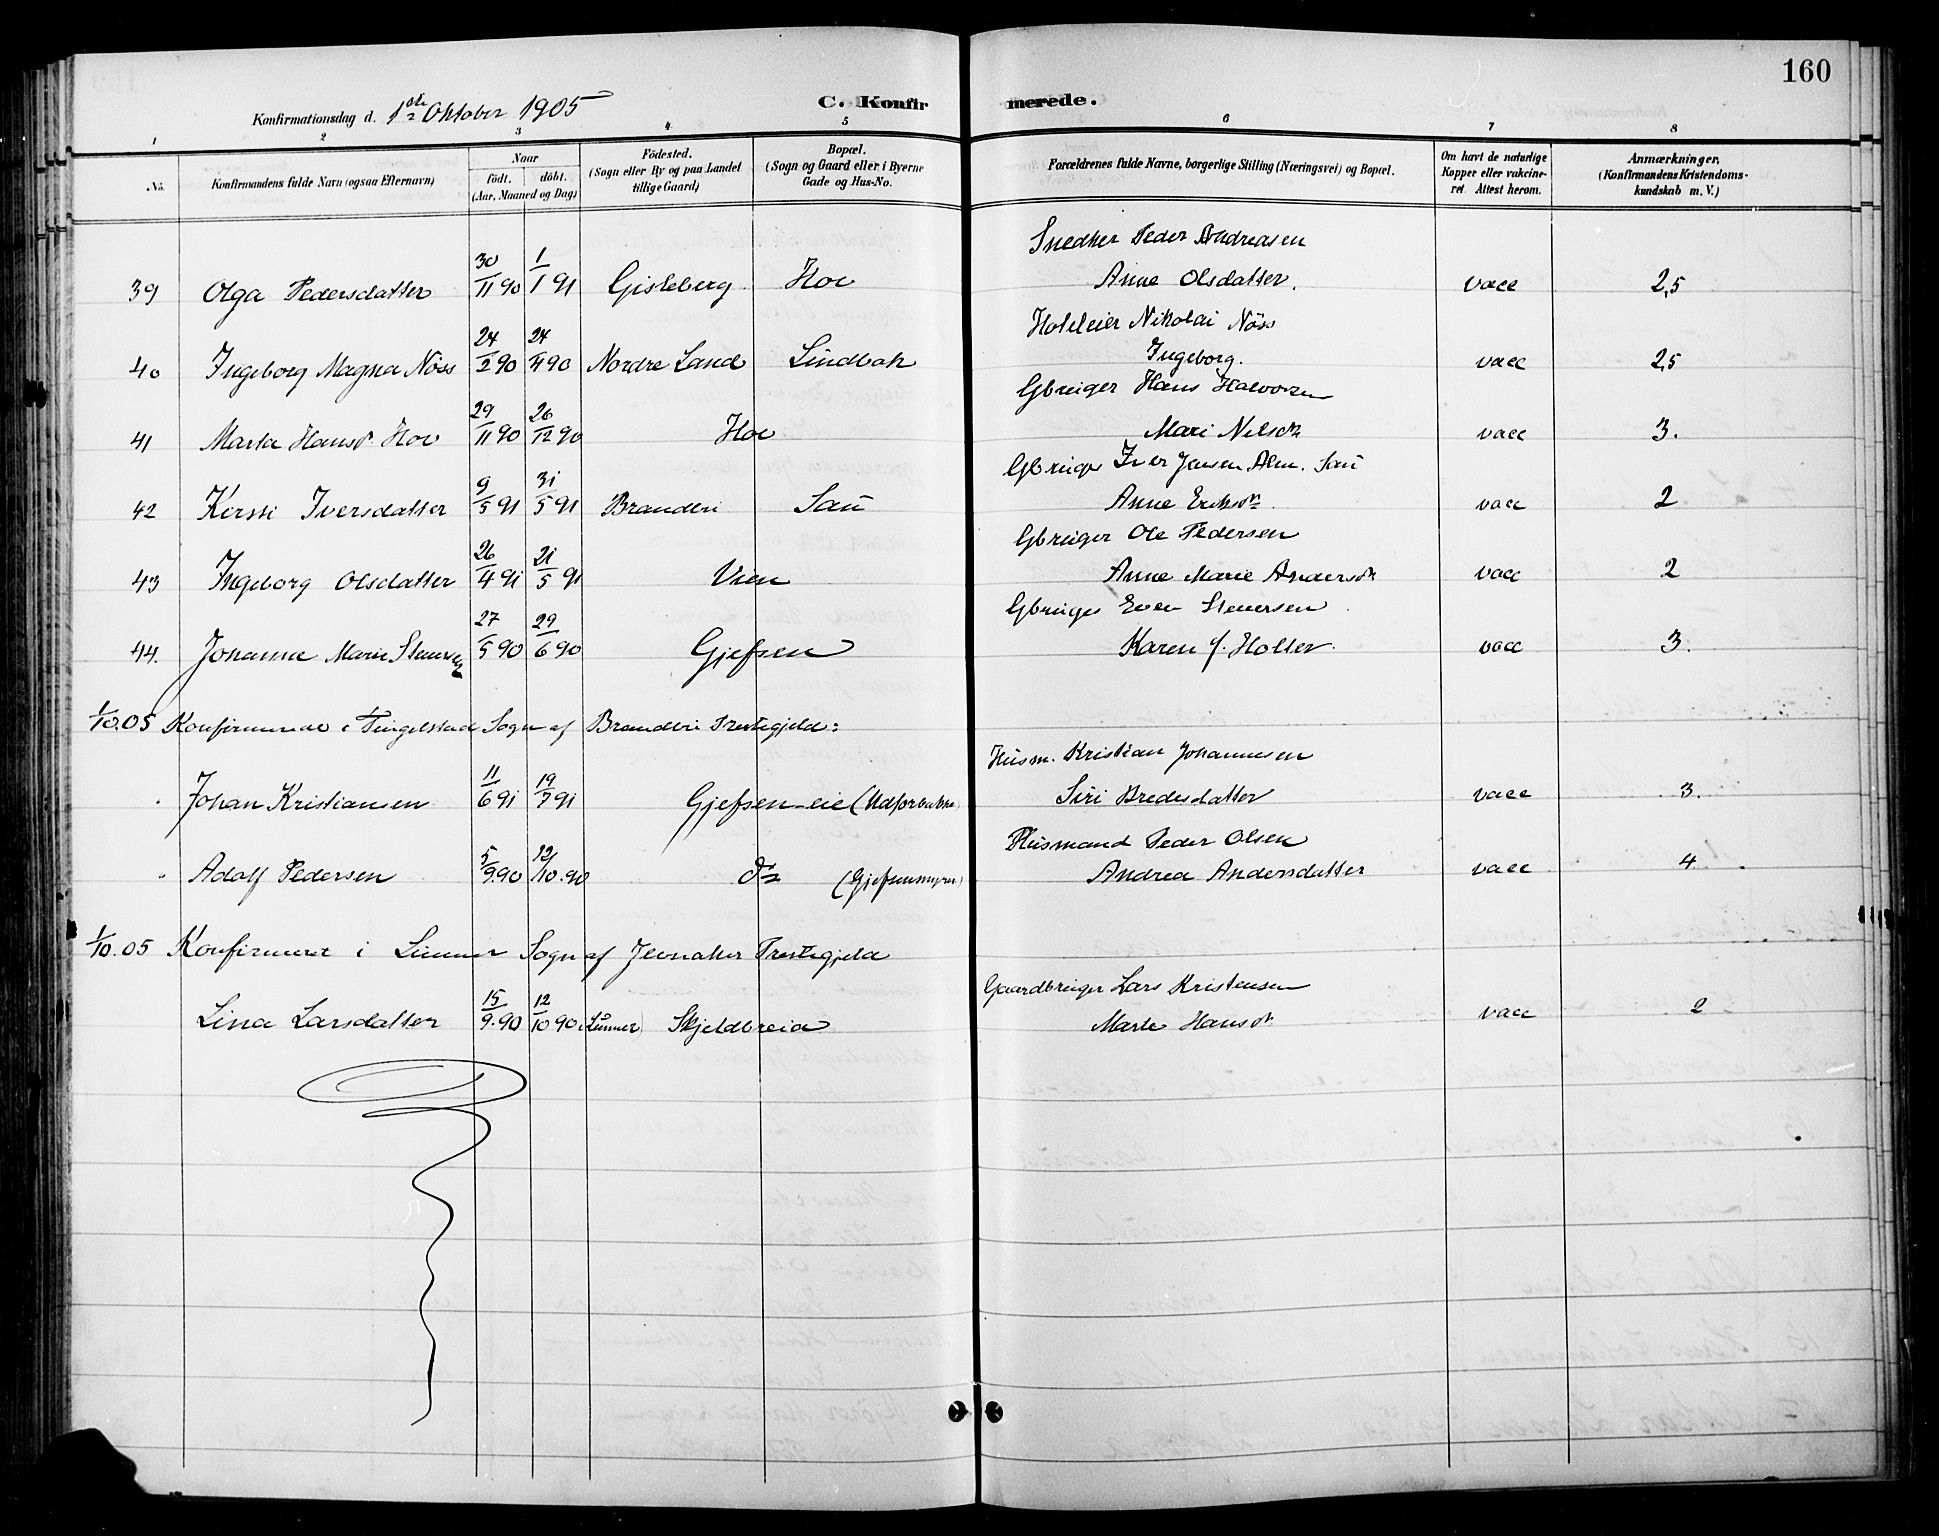 160
Konfirmationsdag d. 1ste Oktober 1905
C. Konfirmerede.
1 2 3 4 5 6 7 8
No. Konfirmandens fulde Navn (ogsaa Efternavn) Naar födt. döbt. (Aar, Maaned og Dag) Födested. (Sogn eller By og paa Landet tillige Gaard) Bopæl. (Sogn og Gaard eller i Byerne Gade og Hus-No. Forældrenes fulde Navne, borgerlige Stilling (Næringsvei) og Bopæl. Om havt de naturlige Kopper eller vakcineret. Attest herom. Anmærkninger. (Konfirmandens Kristendomskundskab m. V.)
Snedker Peder Andreasen
39 Olga Pedersdatter 30/11 90 1/1 91 Gisleberg Hov Anne Olsdatter. vacc 2,5
Hoteleier Nikolai Nöss
40 Ingeborg Magna Nöss 24/2 90 24/4 90 Nordre Land Lindbak Ingeborg. vacc 2,5
Gbruger Hans Halvorsen
41 Marta Hansdr. Hov 29/11 90 26/12 90 Hov Mari Nilsdr vacc 3.
Gbruger Iver Jensen Alm. Sau
42 Kersti Iversdatter 9/5 91 31/5 91 Brandbu Sau Anne Eriksdr. vacc 2
Gbruger Ole Pedersen
43 Ingeborg Olsdatter 26/4 91 21/5 91 Vien Anne Marie Andersdr vacc 2
Gbruger Even Stenersen
44. Johanne Marie 27/5 90 29/6 90 Gjefsen Karen f. Holter. vacc 3.
1/10.05 Konfirmerede i Tingelstad Sogn af Brandbu Prestegjeld:
Husm. Kristian Johannesen
" Johan Kristiansen 11/6 91 19/7 91 Gjefsen-eie Siri Bredesdatter vacc 3.
Husmand Peder Olsen
" Adolf Pedersen 5/9.90 12/10.90 Do (Gjefsenmyra) Andrea Andersdatter vacc 4.
1/10.05 Konfirmeret i Lunner Sogn af Jevnaker Prestegjeld
Gaardbruger Lars Kristensen
Lina Larsdatter 15/9.90 12/10 90 (Lunner) Skjeldbreia Marte Hansdr. vacc 2